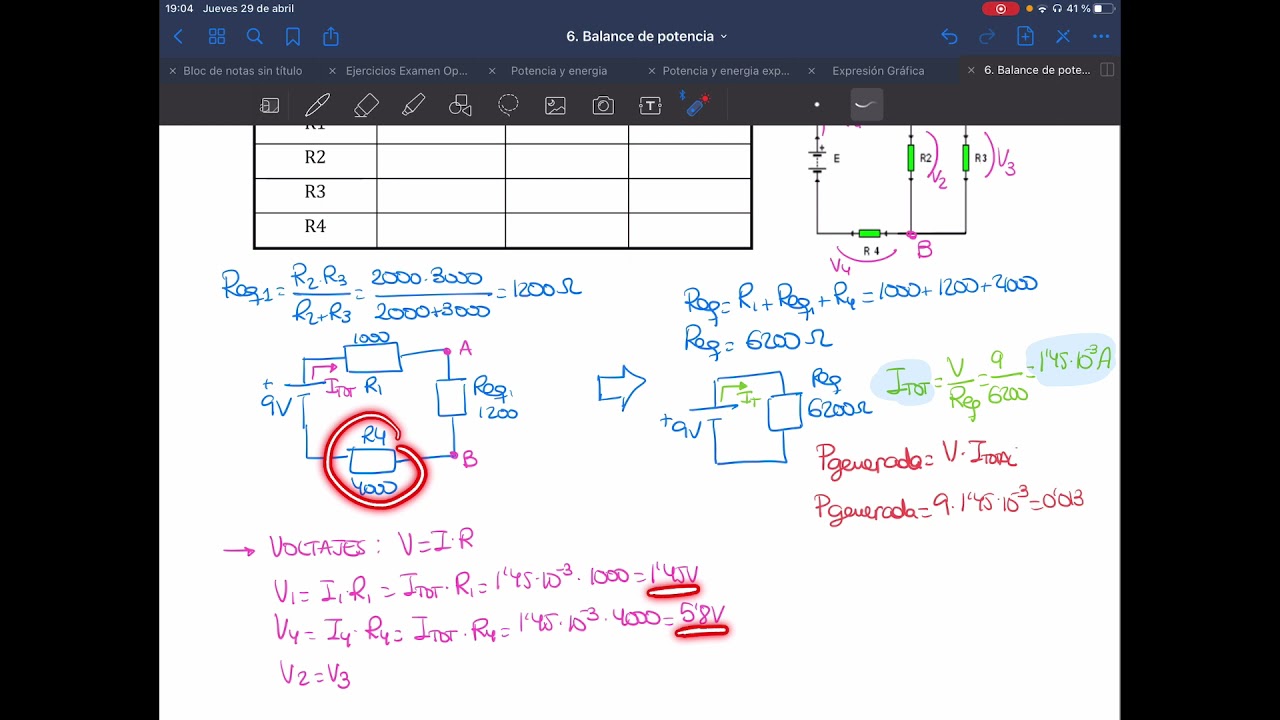 19:04 Jueves 29 de abril
41 %
6. Balance de potencia
Bloc de notas sin título
Ejercicios Examen Op...
Potencia y energia
Potencia y energia exp...
Expresión Gráfica
6. Balance de pote...
R1
R2
R3
R4
+
E
R2
V2
R3
V3
R 4
V4
B
Req1 = R2·R3 / R2+R3 = 2000·3000 / 2000+3000 = 1200Ω
Req = R1 + Req1 + R4 = 1000 + 1200 + 4000
Req = 6200 Ω
1000
A
ITOT
R1
+
9V
Req1
1200
R4
4000
B
IT
+
9V
Req
6200Ω
ITOT = V / Req = 9 / 6200 = 1'45·10⁻³A
Pgenerada = V·ITOTAL
Pgenerada = 9·1'45·10⁻³ = 0'013
→ VOLTAJES: V=I·R
V1 = I1·R1 = ITOT·R1 = 1'45·10⁻³·1000 = 1'45V
V4 = I4·R4 = ITOT·R4 = 1'45·10⁻³·4000 = 5'8V
V2 = V3